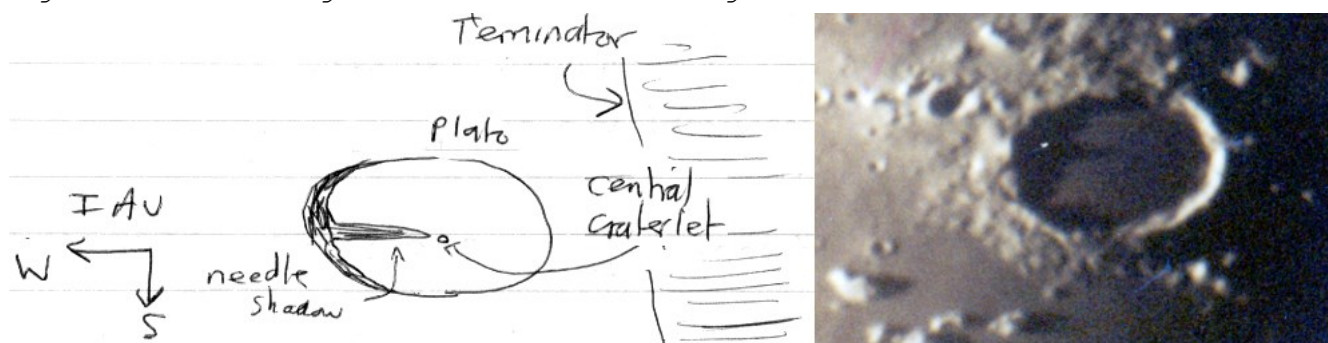 Terminator
Plato
Central
Craterlet
IAU
W
needle
shadow
S